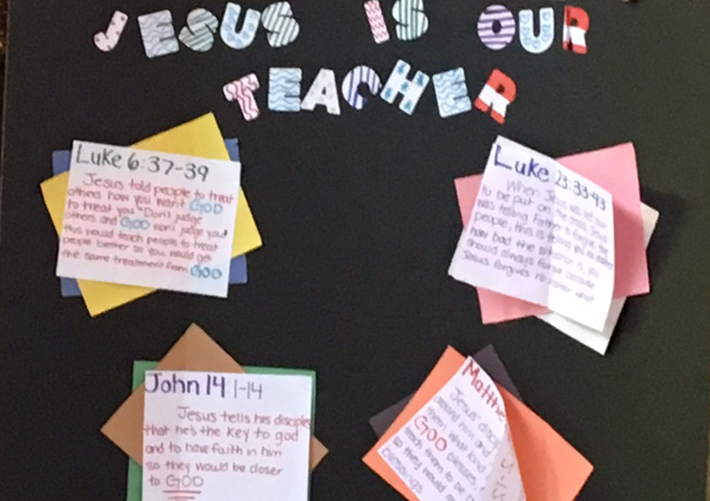 JESUS IS OUR
TEACHER
Luke 6:37-39
Jesus told people to treat
others how you want GOD
to treat you "Don't judge
others and GOD won't judge you"
this would teach people to treat
people better so you would get
the same treatment from GOD
Luke 23:33-43
When Jesus was
to be put on the cross, Jesus
was telling Father to forgive the
people, this is telling you no matter
how bad the situation is, you
should always forgive because
Jesus forgives no matter what
John 14:1-14
Jesus tells his disciples
that he's the key to god
and to have faith in him
so they would be closer
to GOD
Matthe
Jesus' disc
him and
them what kind
GOD blesses
teach them to be
so they would
blessings